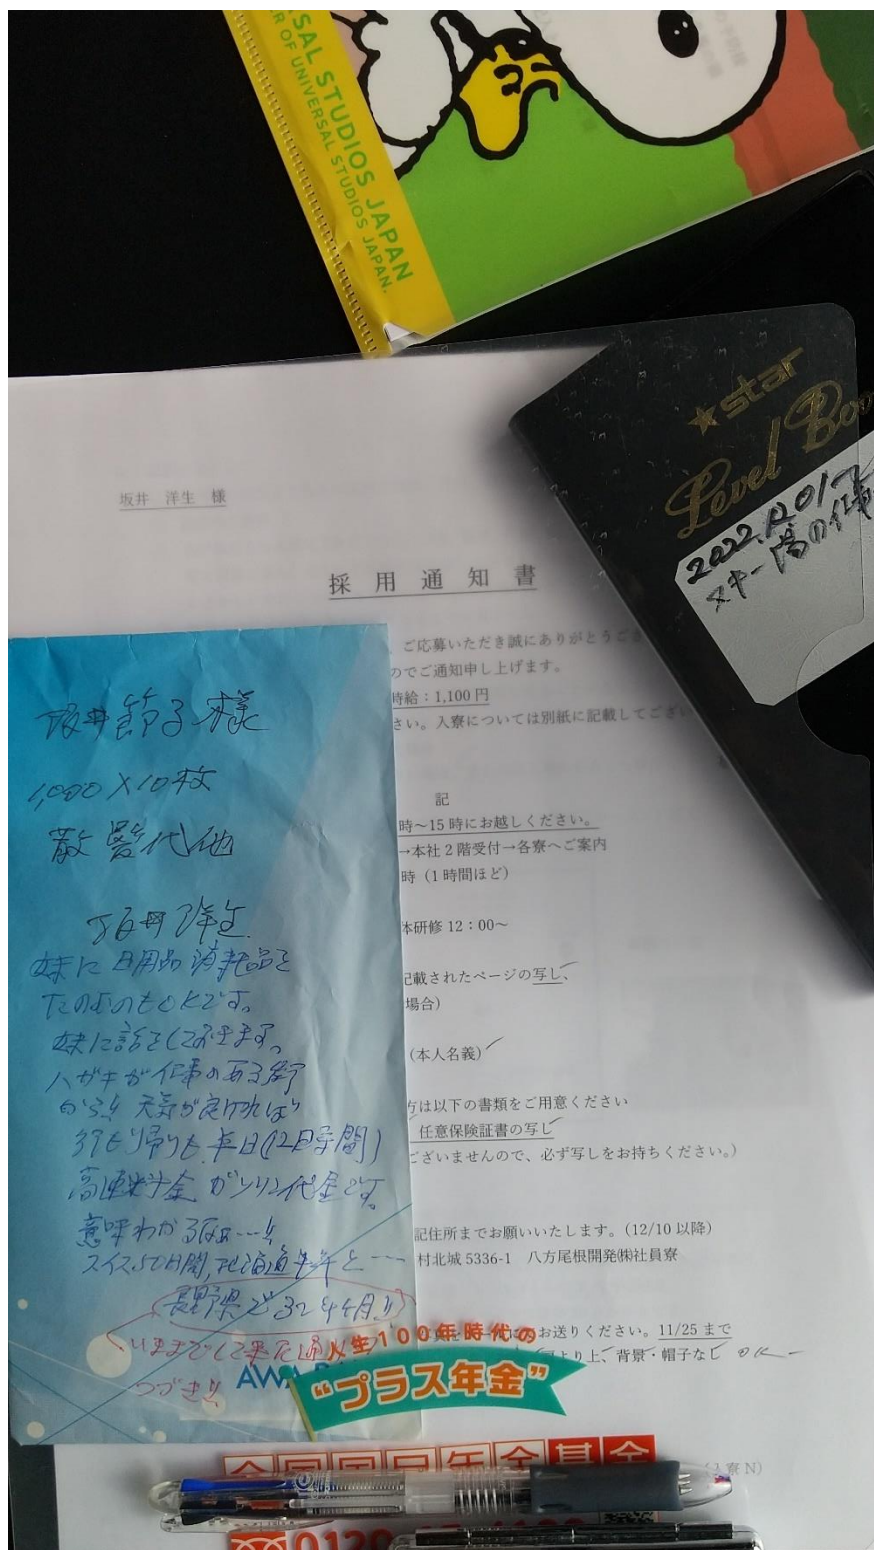 SAL STUDIOS JAPAN
R OF UNIVERSAL STUDIOS JAPAN.
star
Level Boo
2022.12.01〜
スキー場の仕事
坂井 洋生 様
採用通知書
ご応募いただき誠にありがとうござ
のでご通知申し上げます。
時給：1,100円
さい。入寮については別紙に記載してござい
記
時〜15時にお越しください。
→本社2階受付→各寮へご案内
時（1時間ほど）
本研修 12：00〜
記載されたページの写し、
場合）
（本人名義）
方は以下の書類をご用意ください
任意保険証書の写し
ございませんので、必ず写しをお持ちください。）
記住所までお願いいたします。（12/10以降）
村北城5336-1 八方尾根開発㈱社員寮
お送りください。11/25まで
より上、背景・帽子なし OK
寮N）
坂井節子様
1,000×10枚
散髪代他
坂井洋生
妹に日用品消耗品を
たのむのもOKです。
妹に話をしておきます。
ハガキが仕事のある
から!! 天気が良ければ
帰りも平日(12日間)
高速料金ガソリン代金です。
意味わかるなぁ…!!
スイス50日間,北海道半年と…
長野県で3〜4ヶ月!!
いままでして来た通り
つづき!!
人生100年時代の
“プラス年金”
全国国民年金基金
0120